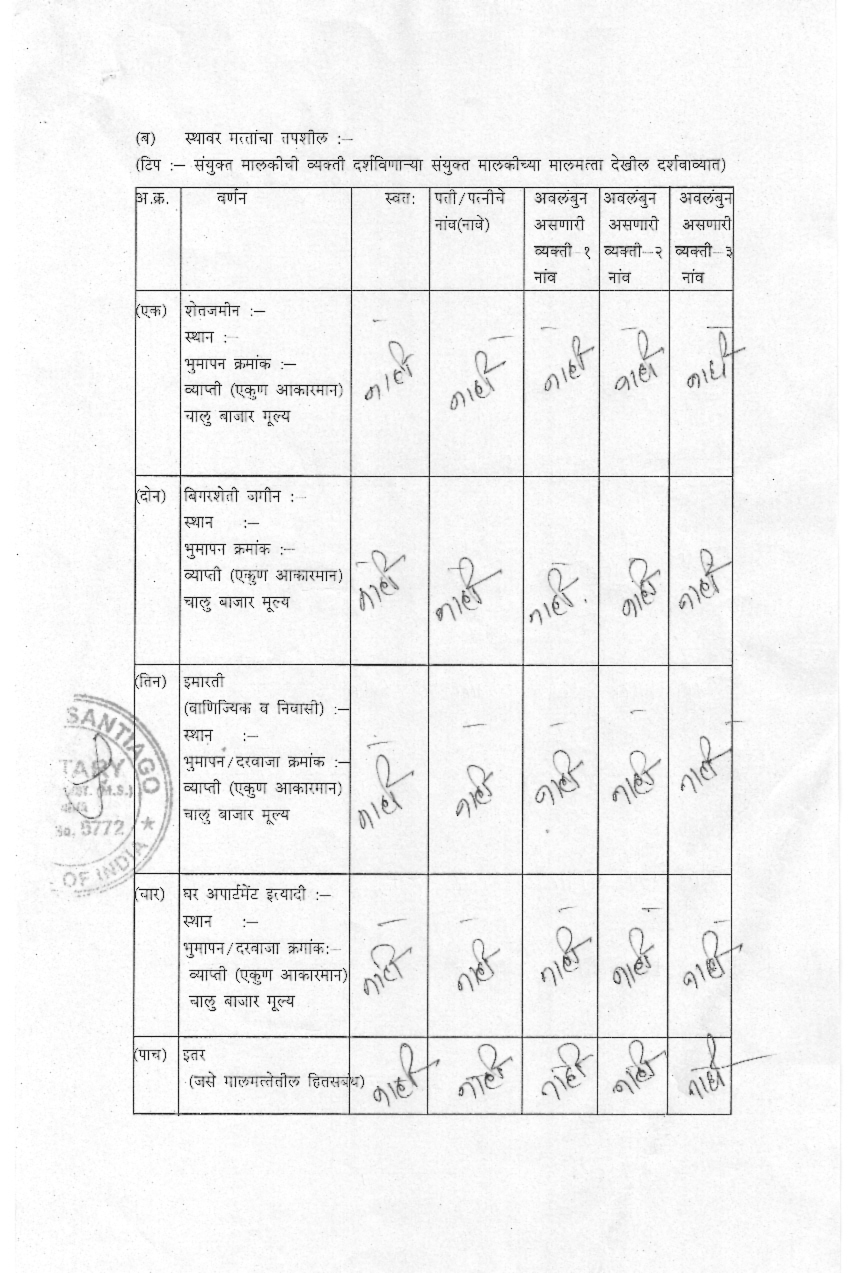 (ब) स्थावर मत्तांचा तपशील :–
(टिप :– संयुक्त मालकीची व्यक्ती दर्शविणाऱ्या संयुक्त मालकीच्या मालमत्ता देखील दर्शवाव्यात)
अ.क्र. वर्णन स्वत: पती/पत्नीचे अवलंबुन अवलंबुन अवलंबुन
नांव(नावे) असणारी असणारी असणारी
व्यक्ती–१ व्यक्ती–२ व्यक्ती–३
नांव नांव नांव
(एक) शेतजमीन :–
स्थान :–
भुमापन क्रमांक :–
व्याप्ती (एकुण आकारमान)
चालु बाजार मूल्य
नाही नाही नाही नाही नाही
(दोन) बिगरशेती जमीन :–
स्थान :–
भुमापन क्रमांक :–
व्याप्ती (एकुण आकारमान)
चालु बाजार मूल्य
नाही नाही नाही नाही नाही
(तिन) इमारती
(वाणिज्यिक व निवासी) :–
स्थान :–
भुमापन/दरवाजा क्रमांक :–
व्याप्ती (एकुण आकारमान)
चालु बाजार मूल्य
नाही नाही नाही नाही नाही
SANTIAGO
TARY
(M.S.)
No. 5772
OF INDIA
(चार) घर अपार्टमेंट इत्यादी :–
स्थान :–
भुमापन/दरवाजा क्रमांक:–
व्याप्ती (एकुण आकारमान)
चालु बाजार मूल्य
नाही नाही नाही नाही नाही
(पाच) इतर
(जसे मालमत्तेतील हितसबंध)
नाही नाही नाही नाही नाही